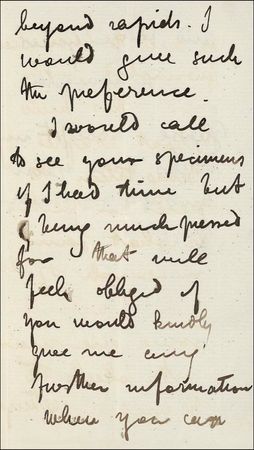 beyond rapids. I
would give such
the preference.
I would call
to see your specimens
if I had time but
being much pressed
for that will
feel obliged if
you would kindly
give me any
further information
when you can